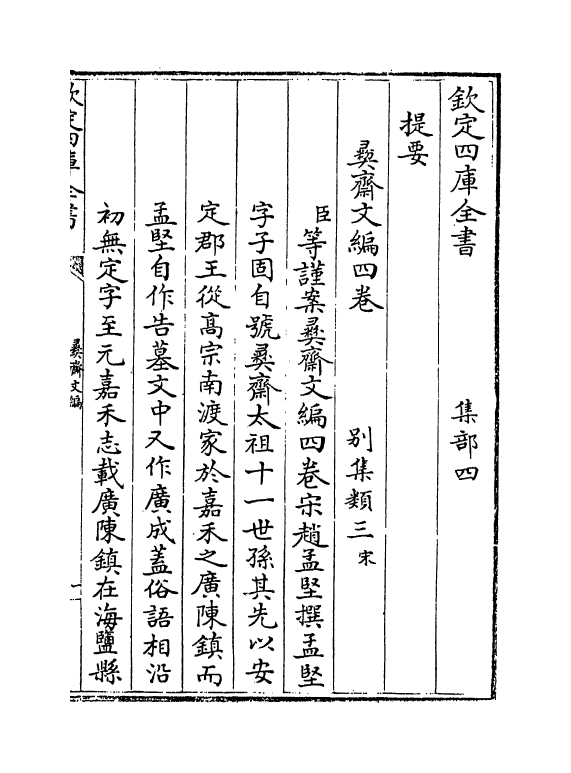 欽定四庫全書　集部四
提要
彝齋文編四卷　别集類三宋
臣等謹案彝齋文編四卷宋趙孟堅撰孟堅
字子固自號彝齋太祖十一世孫其先以安
定郡王從髙宗南渡家於嘉禾之廣陳鎮而
孟堅自作告墓文中又作廣成蓋俗語相沿
初無定字至元嘉禾志載廣陳鎮在海鹽縣
欽定四庫全書　彝齋文編　一